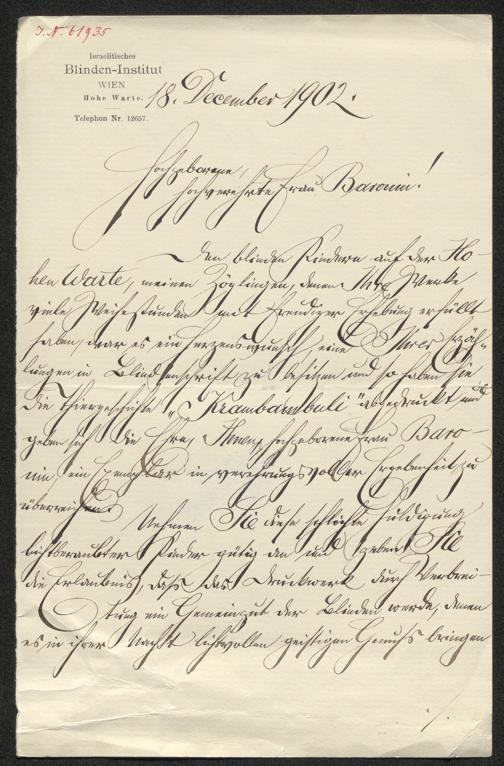 I. N. 61935
Israelitisches
Blinden-Institut
WIEN
Hohe Warte.
Telephon Nr. 12657.
18. December 1902.
Hochgeborene,
hochverehrte Frau Baronin!
Den blinden Kindern auf der Ho-
hen Warte, meinen Zöglingen, denen Ihre Werke
viele Weihestunden mit freudiger Erhebung erfüllt
haben, war es ein Herzenswunsch eine Ihrer Erzäh-
lungen in Blindenschrift zu besitzen und so haben sie
die Thiergeschichte „Krambambuli" abgedruckt und
geben sich die Ehre, Ihnen, hochgeborene Frau Baro-
nin, ein Exemplar in verehrungsvoller Ergebenheit zu
überreichen.
Nehmen Sie diese schlichte Huldigung
lichtberaubter Kinder gütig an und geben Sie
die Erlaubnis, dass das Druckwerk durch Verbrei-
tung ein Gemeingut der Blinden werde, denen
es in ihrer Nacht lichtvollen geistigen Genuss bringen
./.